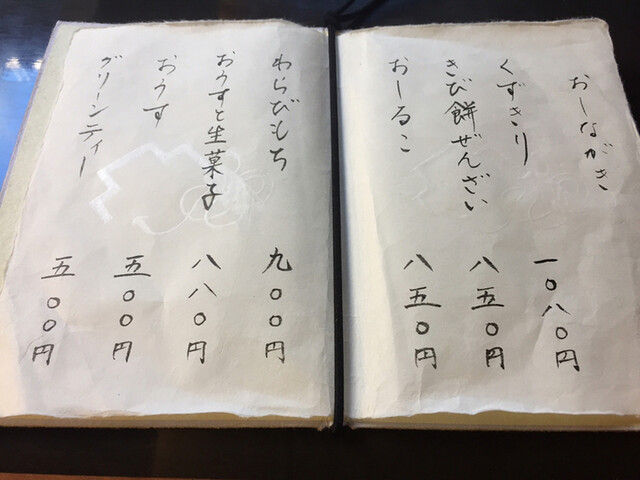 おしながき
くずきり 一〇八〇円
きび餅ぜんざい 八五〇円
おしるこ 八五〇円
わらびもち 九〇〇円
おうすと生菓子 八八〇円
おうす 五〇〇円
グリーンティー 五〇〇円